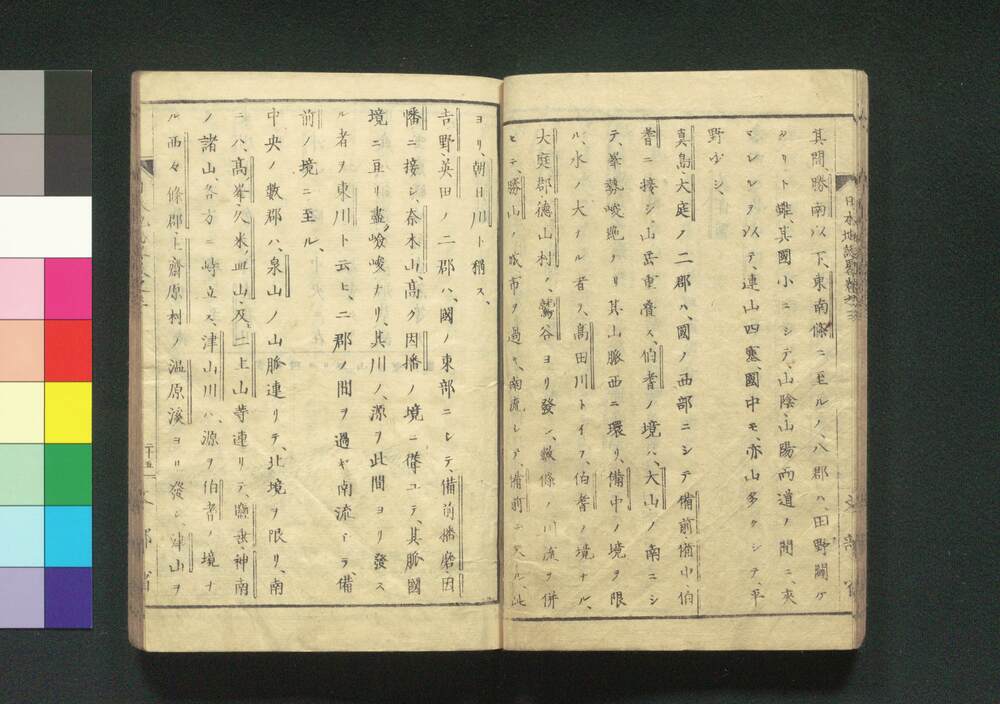 其間、勝南以下、東南條ニ至ルノ、八郡ハ、田野闢ケ
タリト雖、其國小ニシテ、山陰、山陽両道ノ間ニ、夾
マレルヲ以テ、連山四塞、國中モ、亦山多クシテ、平
野少シ、
真島、大庭ノ二郡ハ、國ノ西部ニシテ備前備中伯
耆ニ接シ、山岳重疊ス、伯耆ノ境ハ、大山ノ南ニシ
テ、峯勢峻絶ナリ其山脈西ニ環リ、備中ノ境ヲ限
ル、水ノ大ナル者ヲ、高田川トイフ、伯耆ノ境ナル、
大庭郡、德山村ノ、鷲谷ヨリ發シ、數條ノ川流ヲ併
セテ、勝山ノ城市ヲ過キ、南流シテ、備前ニ入ル、此
ヨリ、朝日川ト稱ス、
吉野、英田ノ二郡ハ、國ノ東部ニシテ、備前播磨、因
幡ニ接シ、奈木山、高ク因播ノ境ニ聳ユテ、其脈國
境ニ亘リ盡嶮峻ナリ、其川ノ、源ヲ此間ヨリ發ス
ル者ヲ東川ト云ヒ、二郡ノ間ヲ過キ南流シテ、備
前ノ境ニ至ル、
中央ノ數郡ハ、泉山ノ山脈連リテ、北境ヲ限リ、南
ニハ、高峯、久米、皿山、及、二上山等連リテ、
神南
ノ諸山、各方ニ峙立ス、津山川ハ、源ヲ伯耆ノ境ナ
ル西々條郡上齋原村ノ
ヨリ發シ、津山ヲ